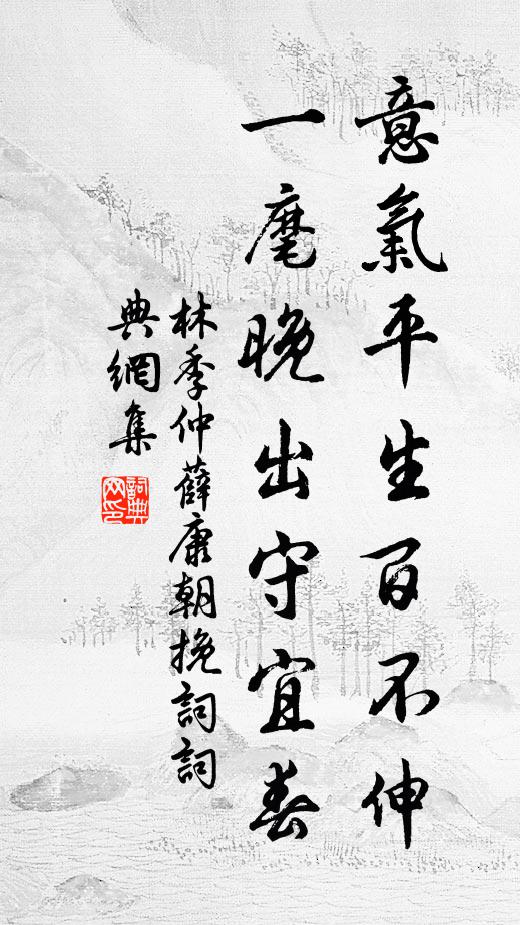 意氣平生百不伸
一麾晚出守宜春
林季仲薛康朝挽詞詞
典網集
詞典网印